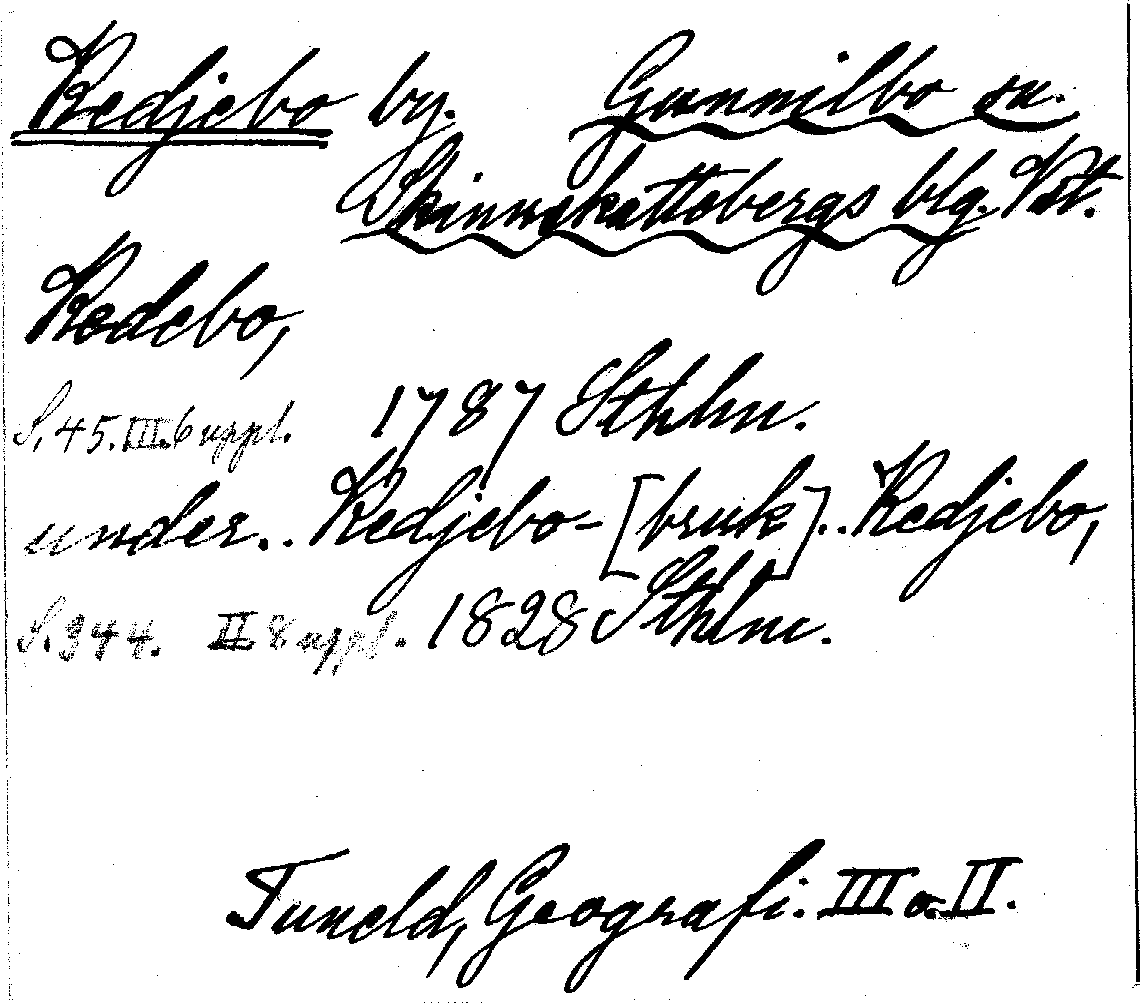 Kedjebo by. Gunnilbo sn.
Skinnskattebergs blg. Vst.
Kedebo,
S. 45. III. 6 uppl. 1787 Sthlm.
under.. Kedjebo-[bruk]..Kedjebo,
S. 344. II 8 uppl. 1828 Sthlm.
Tuneld, Geografi. III o. II.